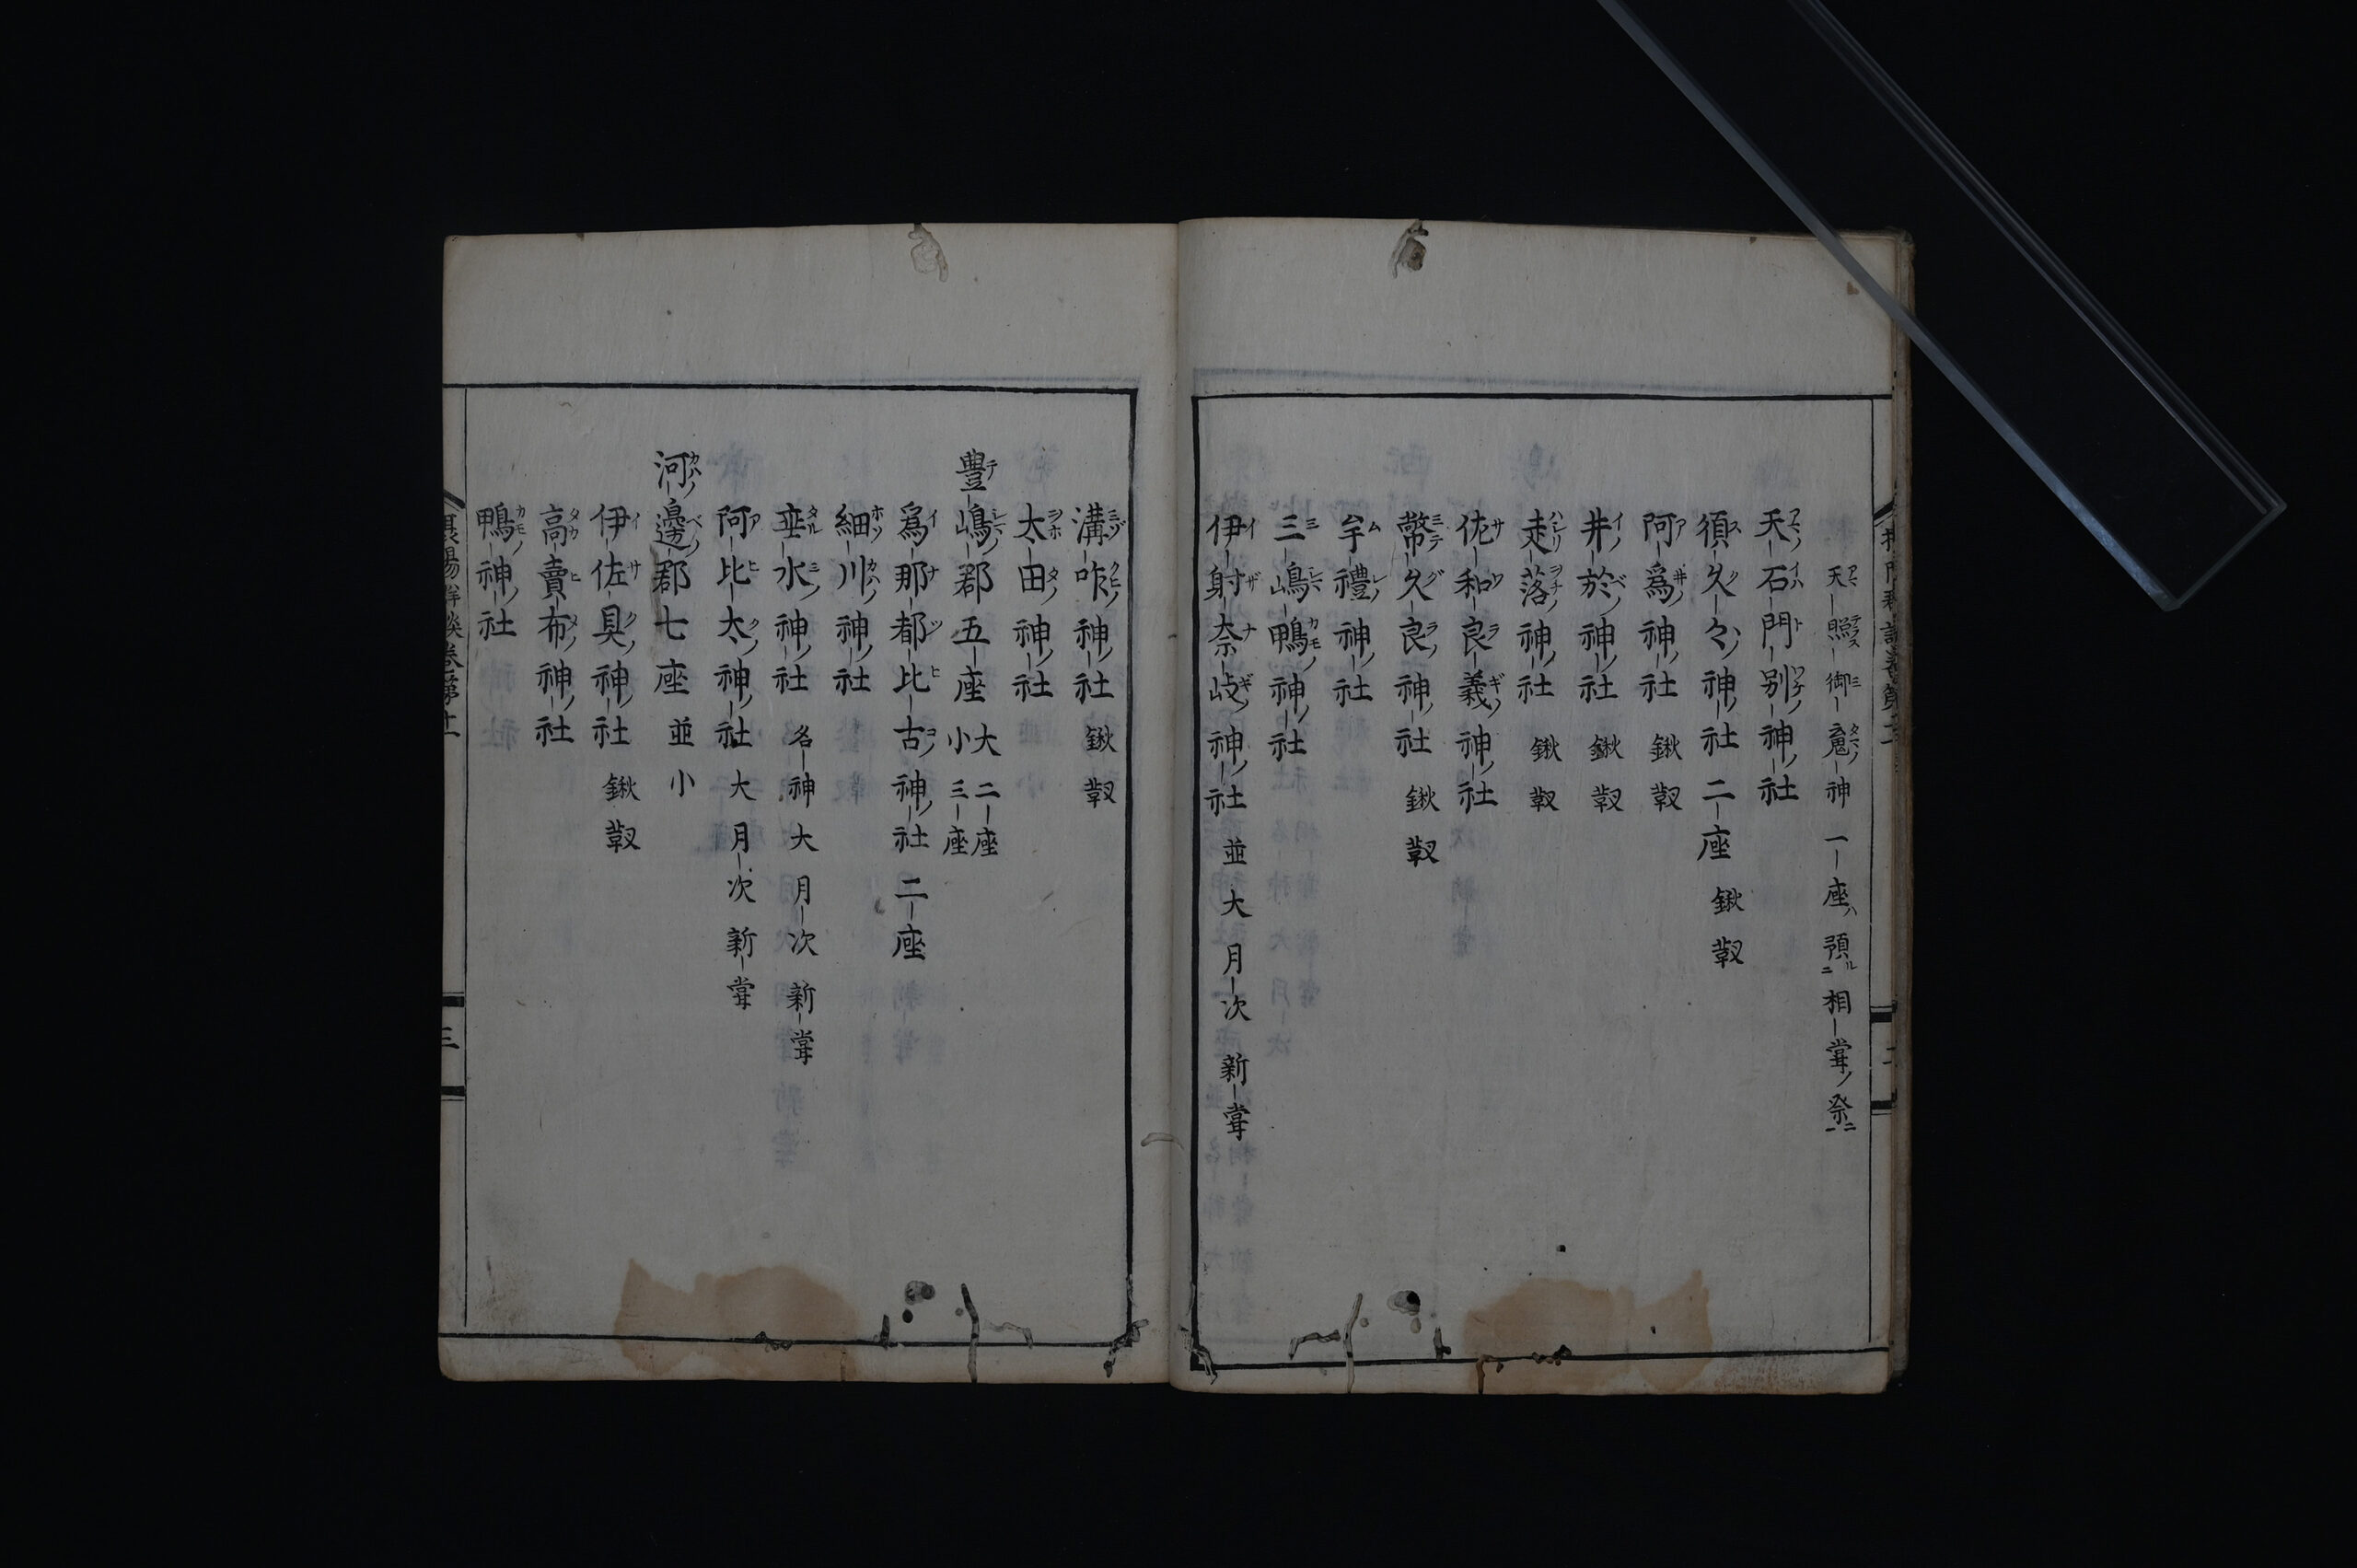 天照御魂神一座預相甞祭
天石門別神社
須久々神社二座鍬靫
阿爲神社鍬靫
井於神社鍬靫
走落神社鍬靫
佐和良義神社
幣久良神社鍬靫
牟禮神社
三嶋鴨神社
伊射奈岐神社並大月次新甞
溝咋神社鍬靫
太田神社
豐嶋郡五座大二座小三座
爲那都比古神社二座
細川神社
垂水神社名神大月次新甞
阿比太神社大月次新甞
河邊郡七座並小
伊佐具神社鍬靫
高賣布神社
鴨神社